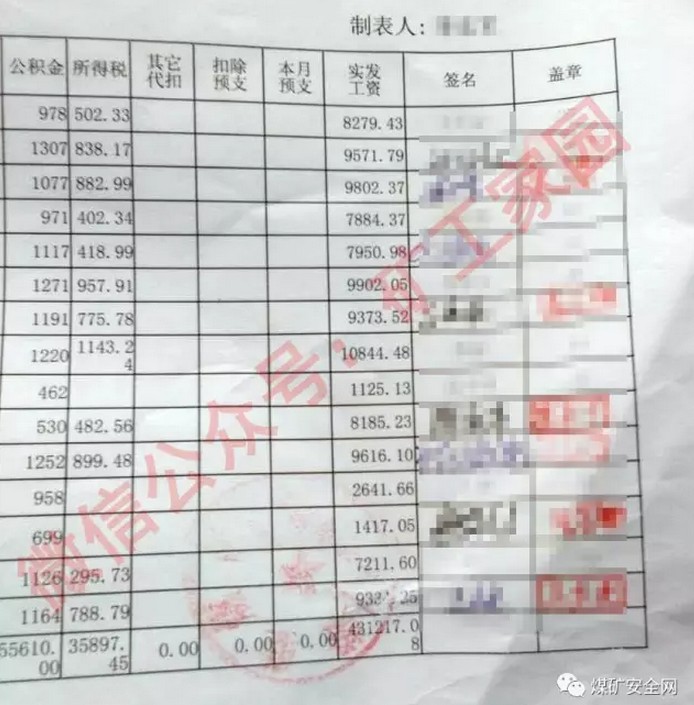 制表人：
公积金 所得税 其它代扣 扣除预支 本月预支 实发工资 签名 盖章
978 502.33 8279.43
1307 838.17 9571.79
1077 882.99 9802.37
971 402.34 7884.37
1117 418.99 7950.98
1271 957.91 9902.05
1191 775.78 9373.52
1220 1143.24 10844.48
462 1125.13
530 482.56 8185.23
1252 899.48 9616.10
958 2641.66
699 1417.05
1126 295.73 7211.60
1164 788.79
55610.00 35897.45 0.00 0.00 0.00 431217.08
微信公众号：矿工家园
煤矿安全网